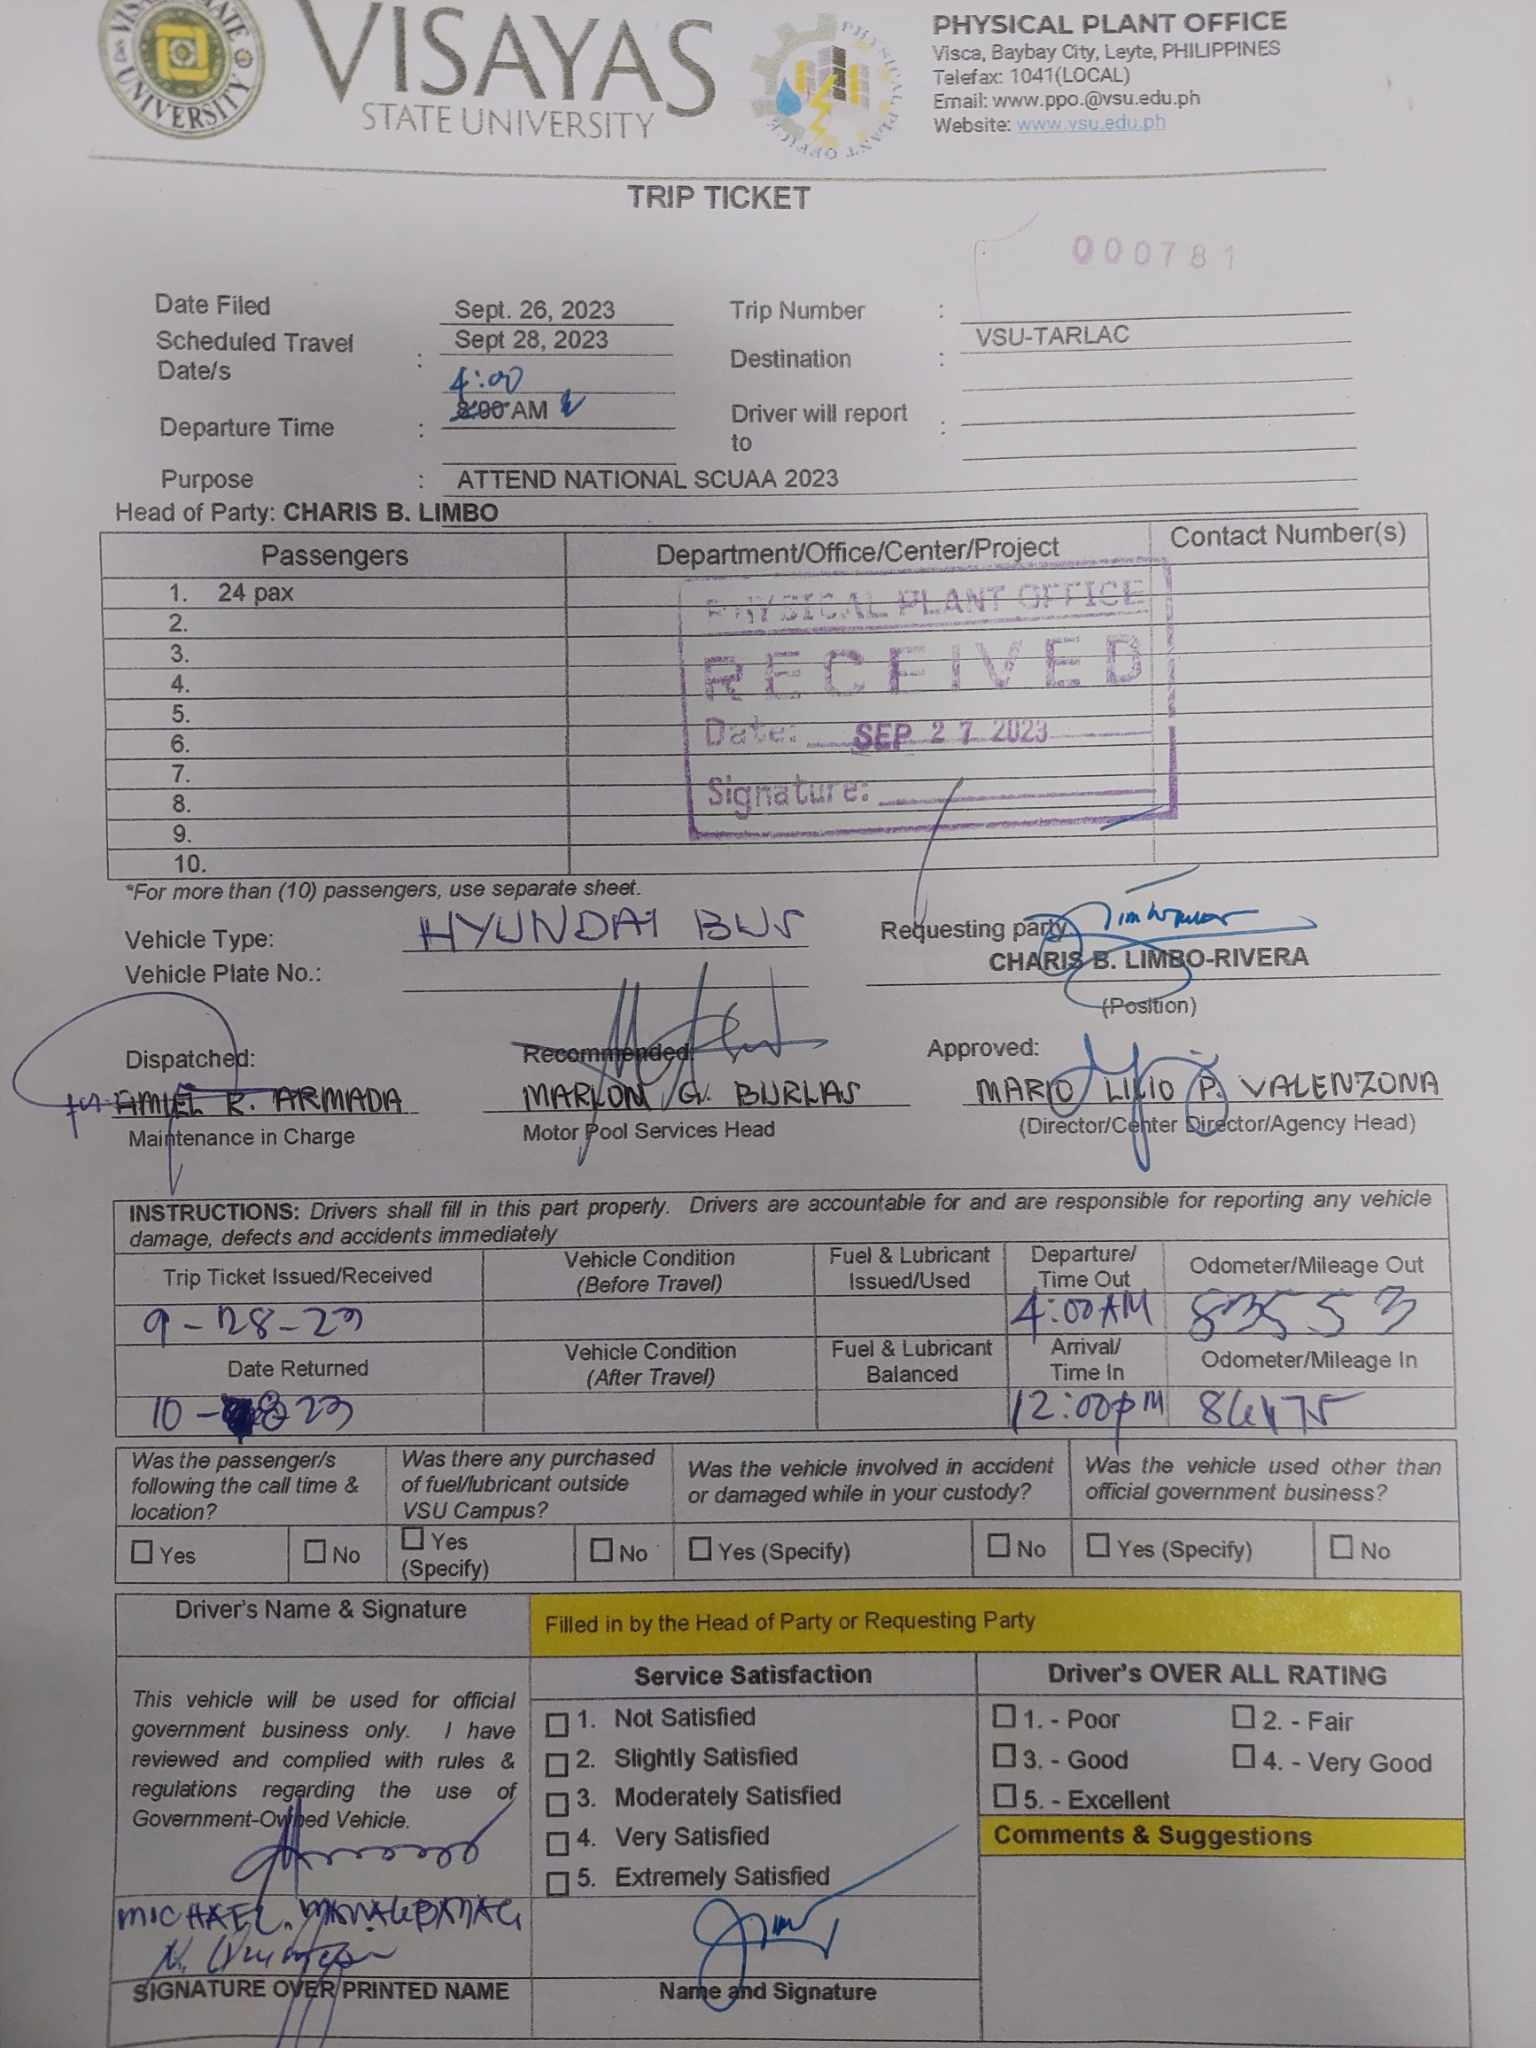 VISAYAS
STATE UNIVERSITY
UNIVERSITY
PHYSICAL PLANT OFFICE
PHYSICAL PLANT OFFICE
Visca, Baybay City, Leyte, PHILIPPINES
Telefax: 1041(LOCAL)
Email: www.ppo.@vsu.edu.ph
Website: www.vsu.edu.ph
TRIP TICKET
000781
Date Filed Sept. 26, 2023 Trip Number :
Scheduled Travel Date/s : Sept 28, 2023 Destination : VSU-TARLAC
4:00
Departure Time : 8:00 AM Driver will report to :
Purpose : ATTEND NATIONAL SCUAA 2023
Head of Party: CHARIS B. LIMBO
Passengers Department/Office/Center/Project Contact Number(s)
1. 24 pax
2.
3.
4.
5.
6.
7.
8.
9.
10.
PHYSICAL PLANT OFFICE
RECEIVED
Date: SEP 27 2023
Signature:
*For more than (10) passengers, use separate sheet.
Vehicle Type: HYUNDAI BUS Requesting party
Vehicle Plate No.: CHARIS B. LIMBO-RIVERA
(Position)
Dispatched: Recommended: Approved:
AMIEL R. ARMADA MARLON G. BURLAS MARIO LILIO P. VALENZONA
Maintenance in Charge Motor Pool Services Head (Director/Center Director/Agency Head)
INSTRUCTIONS: Drivers shall fill in this part properly. Drivers are accountable for and are responsible for reporting any vehicle
damage, defects and accidents immediately
Trip Ticket Issued/Received Vehicle Condition (Before Travel) Fuel & Lubricant Issued/Used Departure/ Time Out Odometer/Mileage Out
9-28-23 4:00AM 83553
Date Returned Vehicle Condition (After Travel) Fuel & Lubricant Balanced Arrival/ Time In Odometer/Mileage In
10- 8 23 12:00PM
Was the passenger/s following the call time & location? Was there any purchased of fuel/lubricant outside VSU Campus? Was the vehicle involved in accident or damaged while in your custody? Was the vehicle used other than official government business?
☐ Yes ☐ No ☐ Yes (Specify) ☐ No ☐ Yes (Specify) ☐ No ☐ Yes (Specify) ☐ No
Driver's Name & Signature Filled in by the Head of Party or Requesting Party
Service Satisfaction Driver's OVER ALL RATING
This vehicle will be used for official
government business only. I have
reviewed and complied with rules &
regulations regarding the use of
Government-Owned Vehicle.
☐ 1. Not Satisfied
☐ 2. Slightly Satisfied
☐ 3. Moderately Satisfied
☐ 4. Very Satisfied
☐ 5. Extremely Satisfied
☐ 1. - Poor ☐ 2. - Fair
☐ 3. - Good ☐ 4. - Very Good
☐ 5. - Excellent
Comments & Suggestions
MICHAEL
SIGNATURE OVER PRINTED NAME Name and Signature